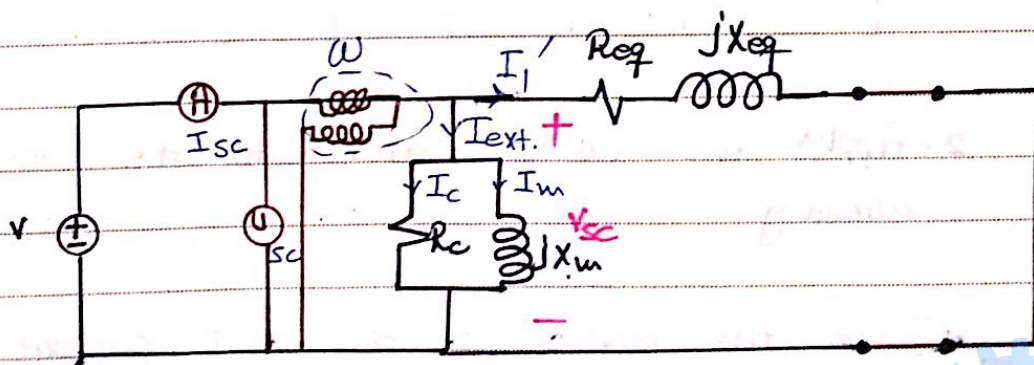 W
I₁'
Req
jXeq
A
Isc
Iext.
+
V
±
V
sc
Ic
Im
Vsc
Rc
jXm
−